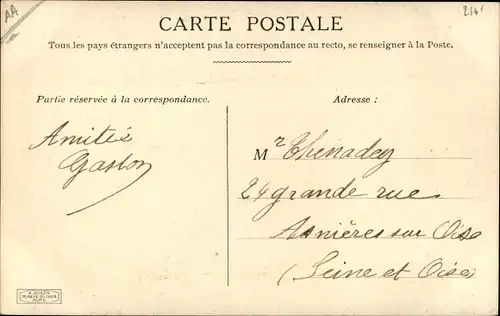 AA
CARTE POSTALE
Tous les pays étrangers n'acceptent pas la correspondance au recto, se renseigner à la Poste.
Partie réservée à la correspondance.
Adresse :
Amitié
Gaston
Mr Thinadey
24 grande rue
Asnières sur Oise
(Seine et Oise)